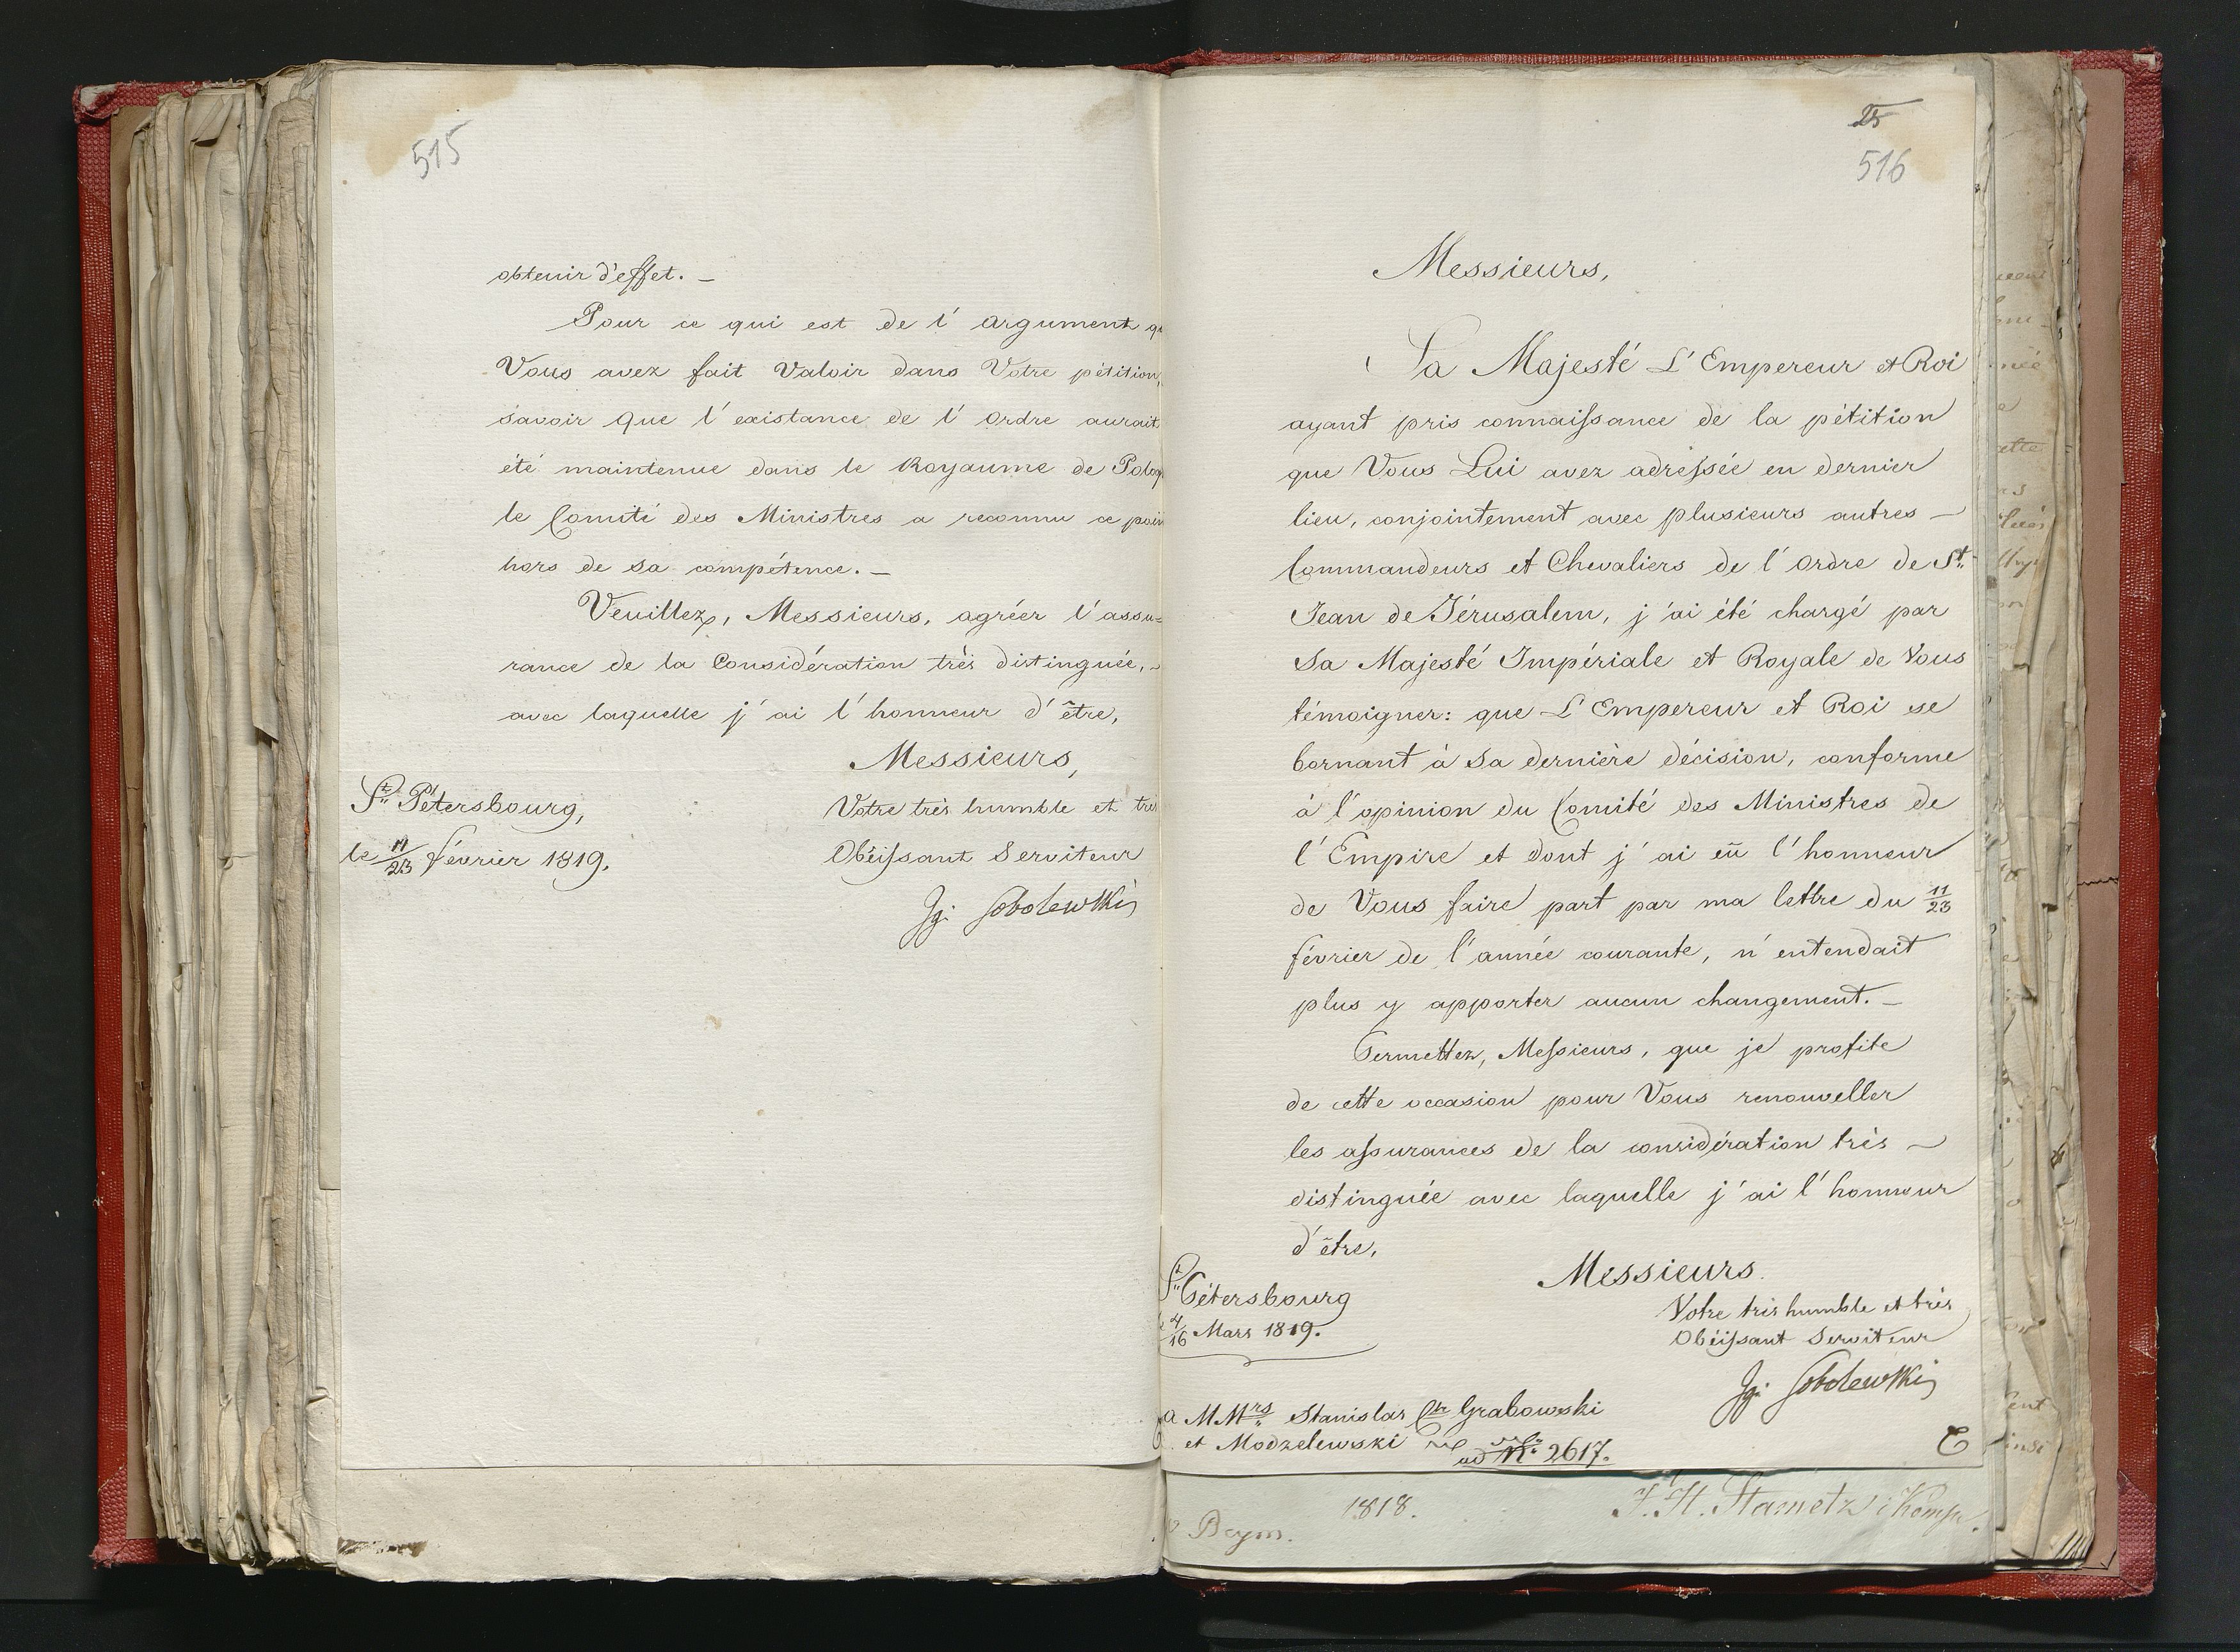 515
obtenir d'effet. –
Pour ce qui est de l'argument
Vous avez fait valoir dans Votre pétition,
savoir que l'existance de l'ordre aurait
été maintenue dans le Royaume de Polog
le Comité des Ministres a reconnu ce poin
hors de sa compétence. –
Veuillez, Messieurs, agréer l'assu=
rance de la Considération très distinguée, –
avec laquelle j'ai l'honneur d'être,
Messieurs,
Votre très humble et très
Obéissant Serviteur
Ig: Sobolewski
St Pétersbourg,
le 11/23 février 1819.
25
516
Messieurs,
Sa Majesté L'Empereur et Roi
ayant pris connaissance de la pétition
que Vous Lui avez adressée en dernier
lieu, conjointement avec plusieurs autres –
Commandeurs et Chevaliers de l'ordre de St
Jean de Jérusalem, j'ai été chargé par
Sa Majesté Impériale et Royale de Vous
témoigner: que L'Empereur et Roi se
bornant à Sa dernière décision, conforme
à l'opinion du Comité des Ministres de
l'Empire et dont j'ai eû l'honneur
de Vous faire part par ma lettre du 11/23
février de l'année courante, n'entendait
plus y apporter aucun changement. –
Permettez, Messieurs, que je profite
de cette occasion pour Vous renouveller
les assurances de la considération très –
distinguée avec laquelle j'ai l'honneur
d'être,
Messieurs.
Votre très humble et très
Obéissant Serviteur
Ig: Sobolewski
St Pétersbourg
4/16 Mars 1819.
a MMrs Stanislas Cte Grabowski
et Modzelewski
ad No 2617.
1818.
Beym.